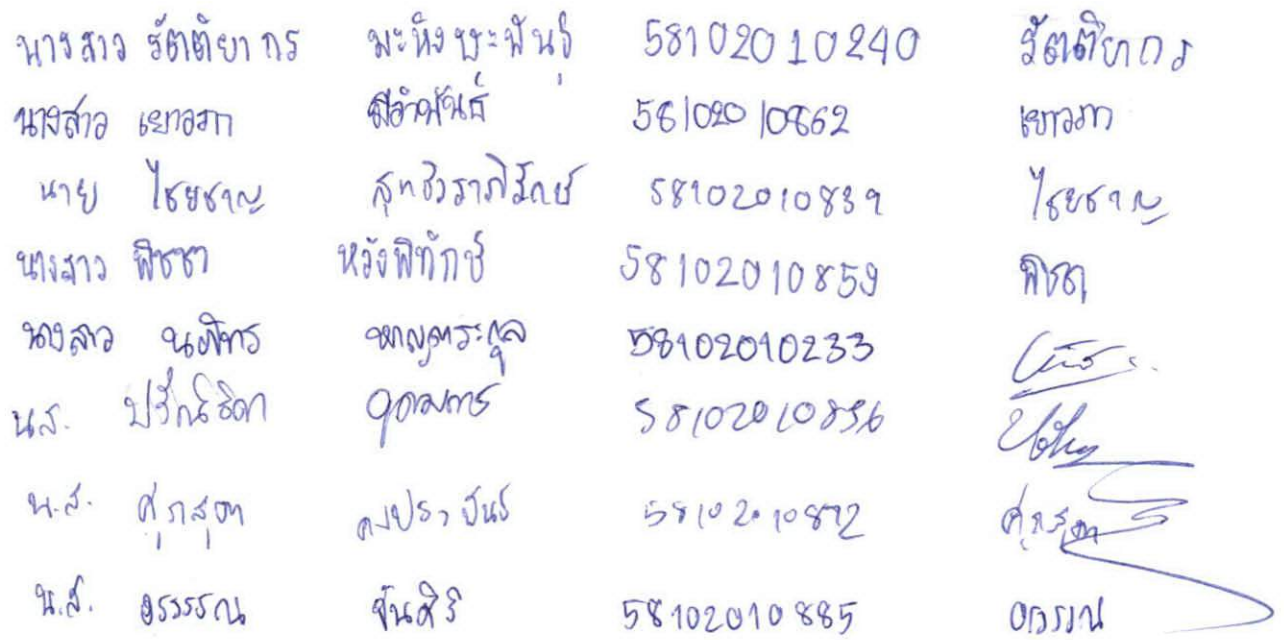 นางสาว รัตติยากร มะหิงษะพันธุ์ 58102010240 รัตติยากร
นางสาว เยาวภา มีสัมพันธ์ 58102010862 เยาวภา
นาย ไชยชาญ สุทธิวราภิรักษ์ 58102010839 ไชยชาญ
นางสาว พิชชา หวังพิทักษ์ 58102010859 พิชชา
นางสาว นภัทร หาญตระกูล 58102010233
น.ส. ปรักษ์ธิดา 58102010856
น.ส. ศุภสุตา คงประจันร์ 58102010872 ศุภสุตา
น.ส. อรวรรณ จันศิริ 58102010885 อรวรรณ